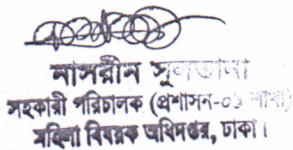 নাসরীন সুলতানা
সহকারী পরিচালক (প্রশাসন-০১ শাখা)
মহিলা বিষয়ক অধিদপ্তর, ঢাকা।